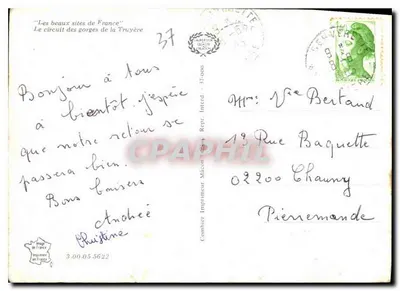 "Les beaux sites de France"
Le circuit des gorges de la Truyère
37
Bonjour à tous
à bientôt. j'espère
que notre retour se
passera bien.
Bons baisers
Andrée
Christine
3.00.05.5622
Combier Imprimeur Mâcon
Mme Vve Bertand
19 Rue Baquette
02200 Chauny
Pierremande
CPAPHIL